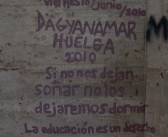 Viernes 18/Junio/2010
DAGYANAMAR
HUELGA
2010
Si no nos dejan
soñar no los
dejaremos dormir
La educación es un deser